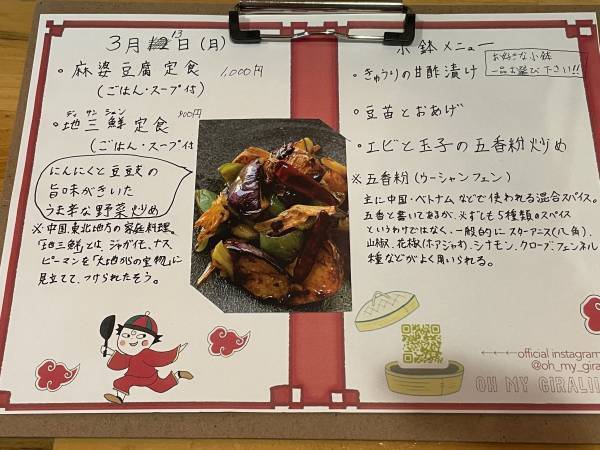 3月13日(月)
・麻婆豆腐定食 1,000円
(ごはん・スープ付)
ディ サン シェン
・地三鮮定食 900円
(ごはん・スープ付)
にんにくと豆豉の
旨味がきいた
うま辛な野菜炒め
※中国、東北地方の家庭料理。
「地三鮮」とは、ジャガイモ、ナス、
ピーマンを「大地からの宝物」に
見立てて、つけられたそう。
小鉢メニュー
お好きな小鉢
一品お選び下さい!!
・きゅうりの甘酢漬け
・豆苗とおあげ
・エビと玉子の五香粉炒め
※五香粉(ウーシャンフェン)
主に中国・ベトナムなどで使われる混合スパイス。
五香と書いてあるが、必ずしも5種類のスパイス
というわけではなく、一般的にスターアニス(八角)、
山椒、花椒(ホアジャオ)、シナモン、クローブ、フェンネル
種などがよく用いられる。
official instagram
@oh_my_gira
OH MY GIRA